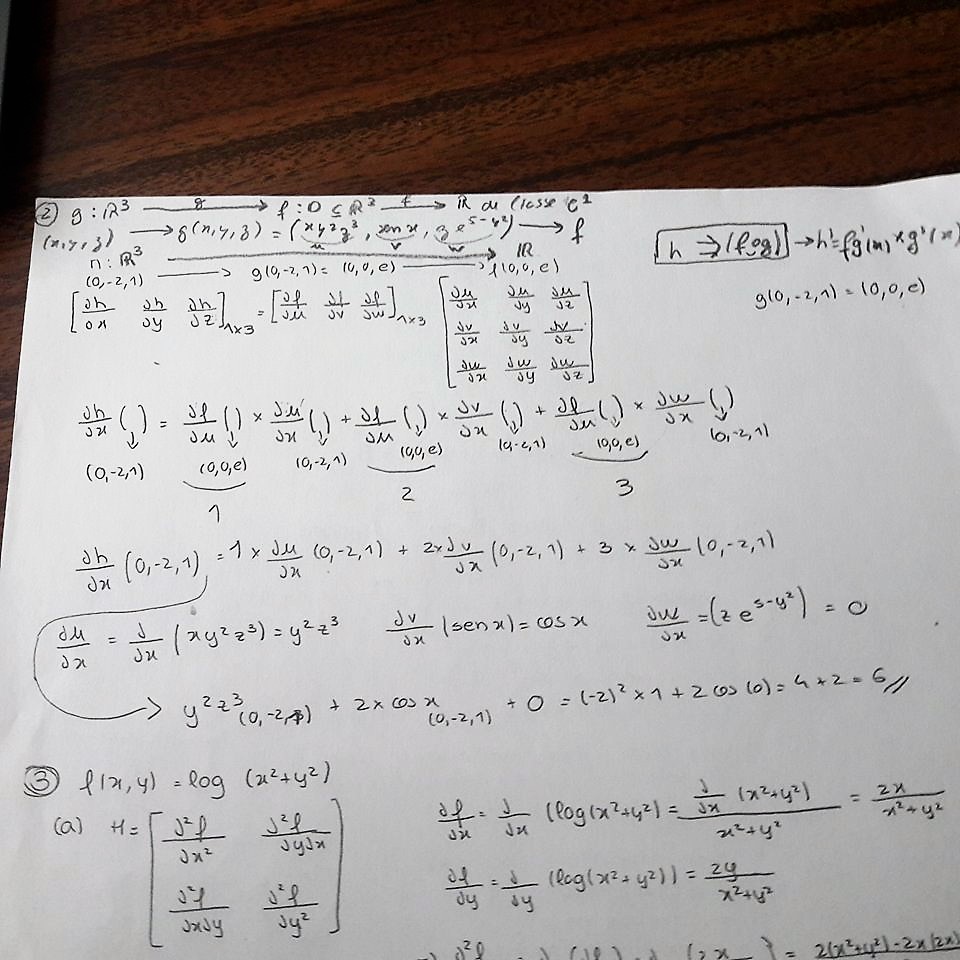 ② g : ℝ³ —g→ f : D ⊆ ℝ³ —f→ ℝ de classe C¹
(x,y,z) → g(x,y,z) = (xy²z³, sen x, z e^(5-y²)) → f
u v w
h → (fog) → h' = fg'(x) × g'(x)
h : ℝ³ → ℝ
(0,-2,1) → g(0,-2,1) = (0,0,e) → f(0,0,e)
g(0,-2,1) = (0,0,e)
[∂h/∂x ∂h/∂y ∂h/∂z]1×3 = [∂f/∂u ∂f/∂v ∂f/∂w]1×3 [∂u/∂x ∂u/∂y ∂u/∂z
∂v/∂x ∂v/∂y ∂v/∂z
∂w/∂x ∂w/∂y ∂w/∂z]
∂h/∂x ( ) = ∂f/∂u ( ) × ∂u/∂x ( ) + ∂f/∂u ( ) × ∂v/∂x ( ) + ∂f/∂u ( ) × ∂w/∂x ( )
(0,-2,1) (0,0,e) (0,-2,1) (0,0,e) (0,-2,1) (0,0,e) (0,-2,1)
1 2 3
∂h/∂x (0,-2,1) = 1 × ∂u/∂x (0,-2,1) + 2 × ∂v/∂x (0,-2,1) + 3 × ∂w/∂x (0,-2,1)
∂u/∂x = ∂/∂x (xy²z³) = y²z³ ∂v/∂x (sen x) = cos x ∂w/∂x = (z e^(5-y²)) = 0
→ y²z³ (0,-2,1) + 2 × cos x (0,-2,1) + 0 = (-2)² × 1 + 2 cos (0) = 4 + 2 = 6 //
③ f(x,y) = log (x²+y²)
(a) H = [∂²f/∂x² ∂²f/∂y∂x
∂²f/∂x∂y ∂²f/∂y²]
∂f/∂x = ∂/∂x (log(x²+y²) = ∂/∂x (x²+y²) / x²+y² = 2x / x²+y²
∂f/∂y = ∂/∂y (log(x²+y²)) = 2y / x²+y²
2(x²+y²)-2x(2x)